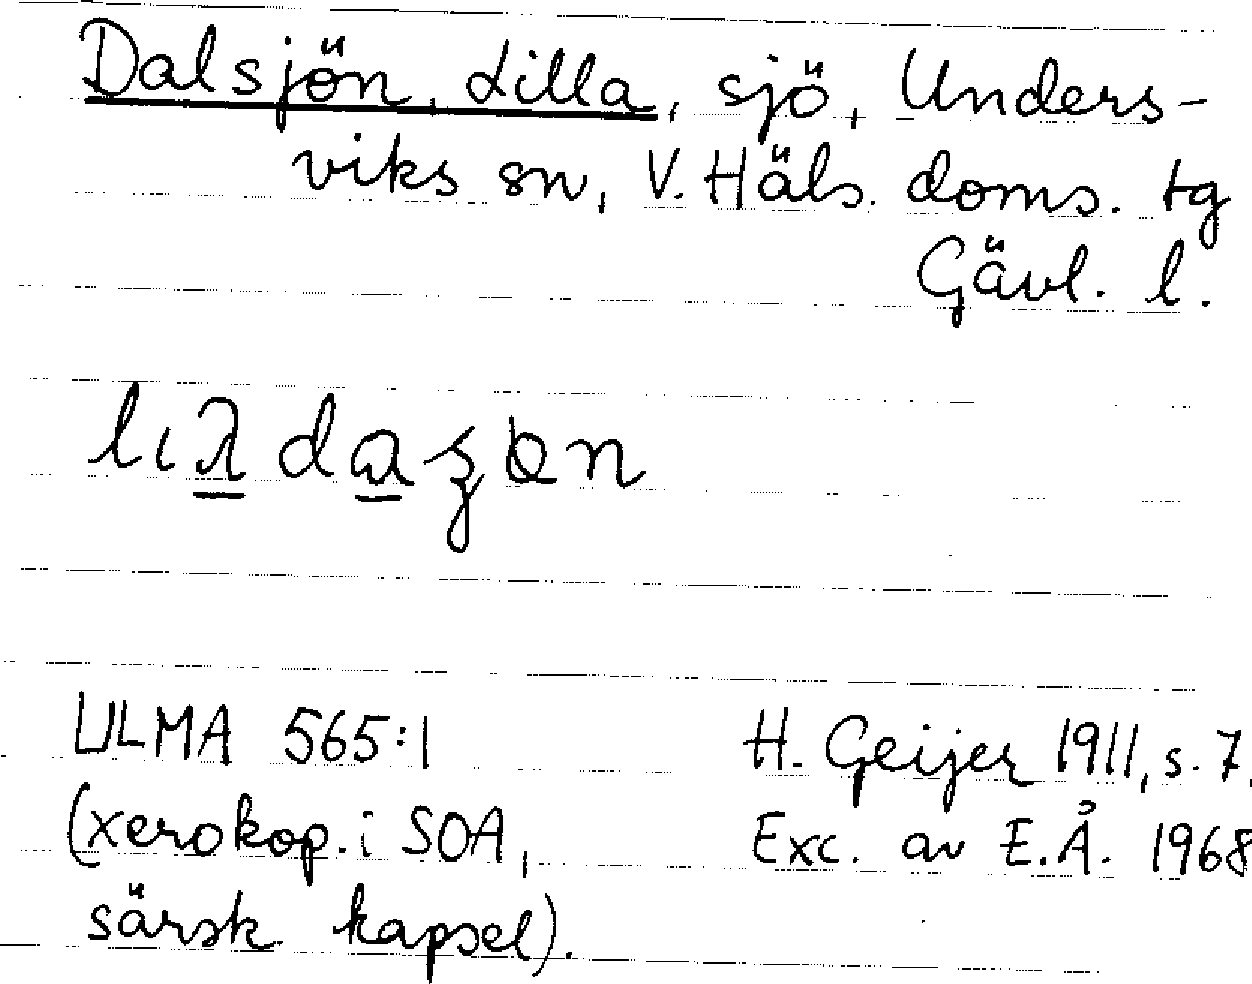 Dalsjön, Lilla, sjö, Unders-
viks sn, V. Häls. doms. tg
Gävl. l.
ULMA 565:1
(xerokop. i SOA,
särsk. kapsel).
H. Geijer 1911, s. 7.
Exc. av E.Å. 1968